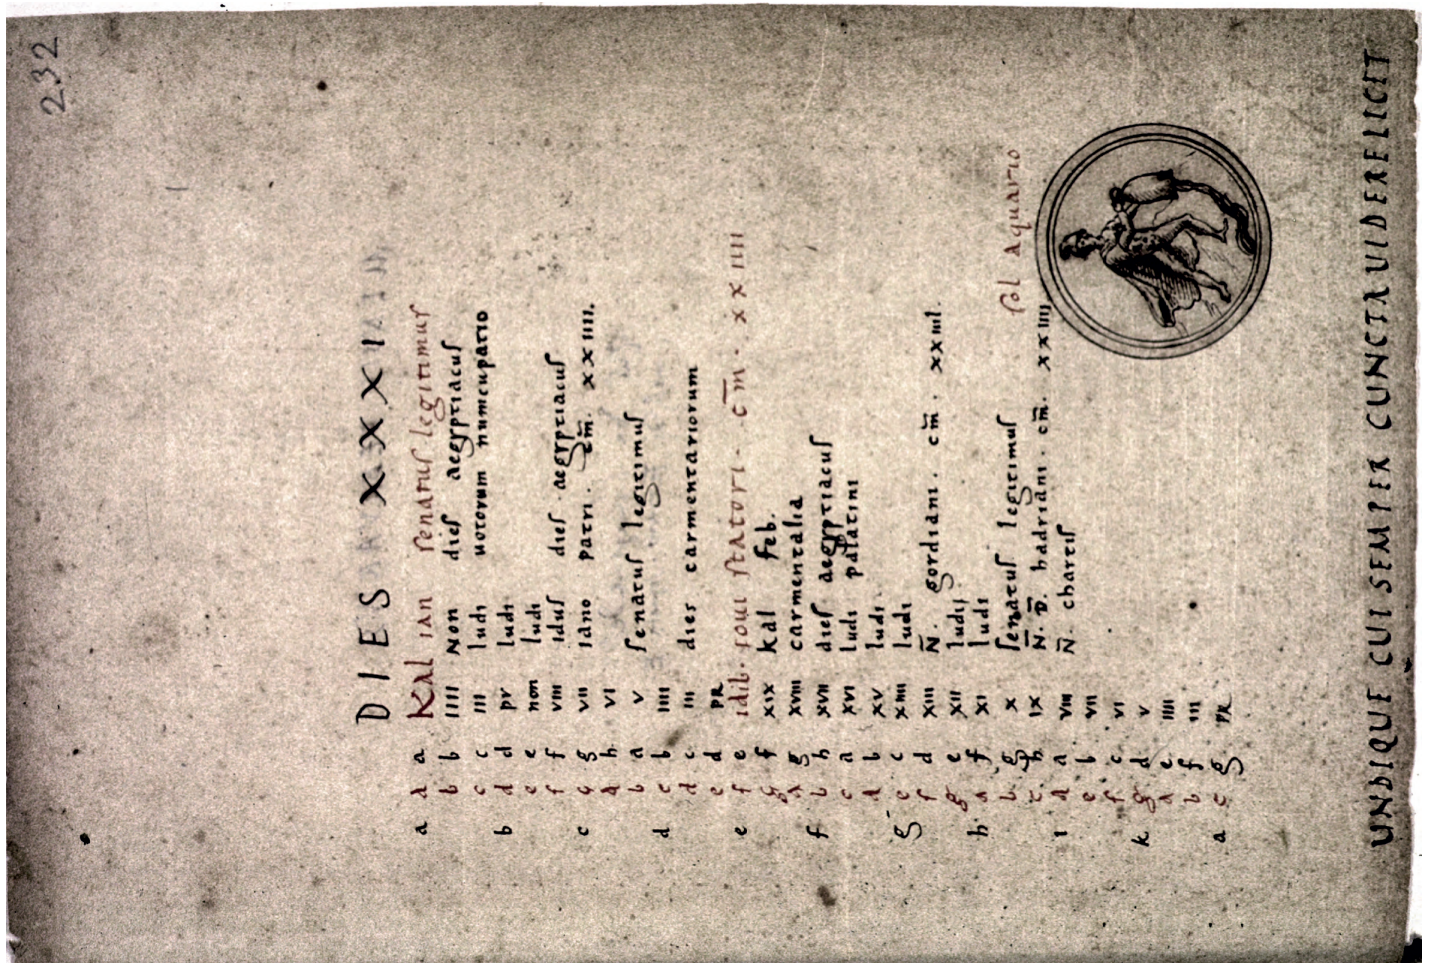 232
DIES XXXI
a a a Kal IAN senatus legitimus
b b IIII Non dies aegyptiacus
c c III ludi uotorum numcupatio
b d d pr ludi
e e non ludi
f f VIII idus dies aegyptiacus
c g g VII iano patri. cm̄. XXIIII.
A h VI
b a V senatus legitimus
d c b IIII
d c III dies carmentariorum
e d PR
e f e idib. ioui statori. cm̄. XXIIII
g f XIX kal feb.
A g XVIII carmentalia
f b h XVII dies aegyptiacus
c a XVI ludi palatini
d b XV ludi.
g e c XIIII ludi
f d XIII N̄. gordiani. cm̄. XXIIII.
g e XII ludi
h A f XI ludi
b g X senatus legitimus sol Aquario
c h IX N̄. D̄. hadriani. cm̄. XXIIII
i d a VIII N̄ chartis
e b VII
f c VI
k g d V
A e IIII
b f III
a c g PR
UNDIQUE CUI SEMPER CUNCTA UIDERE LICIT